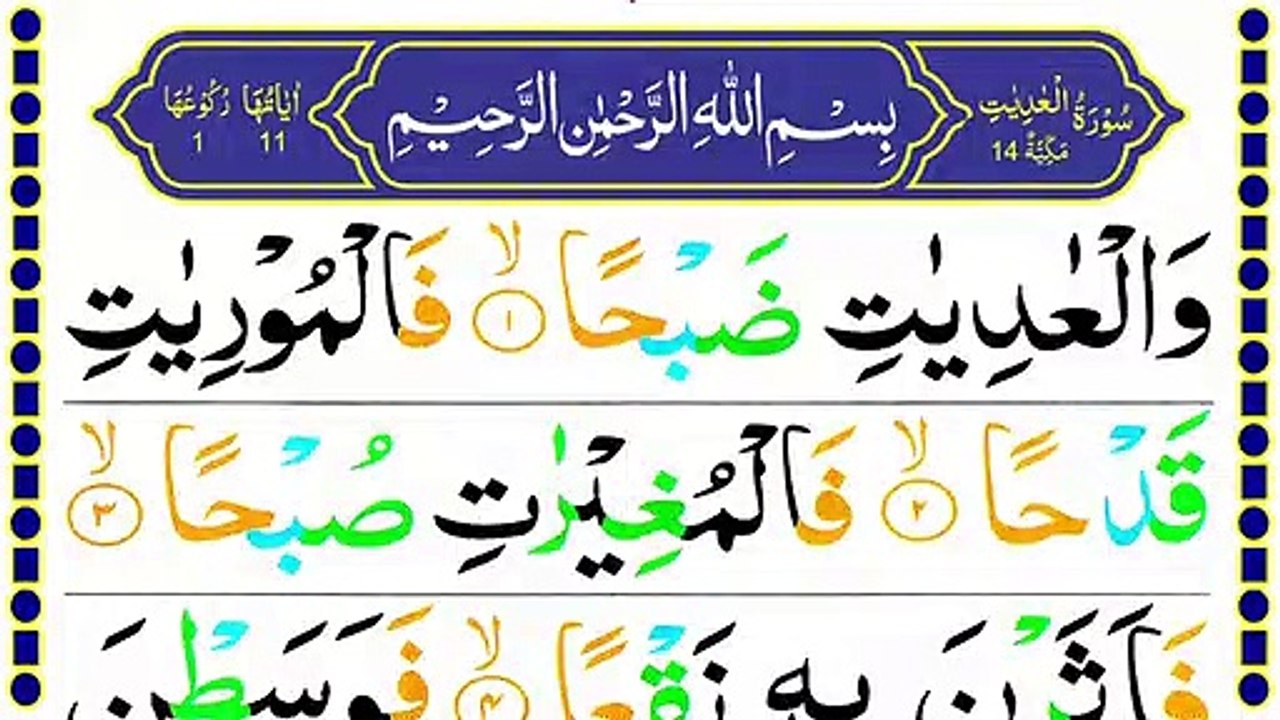 سُوْرَةُ الْعٰدِيٰتِ مَكِّيَّةٌ 14 بِسْمِ اللّٰهِ الرَّحْمٰنِ الرَّحِيْمِ اٰيَاتُهَا 11 رُكُوْعُهَا 1
وَالْعٰدِيٰتِ ضَبْحًا ۙ‏﴿۱﴾ فَالْمُوْرِيٰتِ
قَدْحًا ۙ‏﴿۲﴾ فَالْمُغِيْرٰتِ صُبْحًا ۙ‏﴿۳﴾
فَاَثَرْنَ بِهٖ نَقْعًا ۙ‏﴿۴﴾ فَوَسَطْنَ